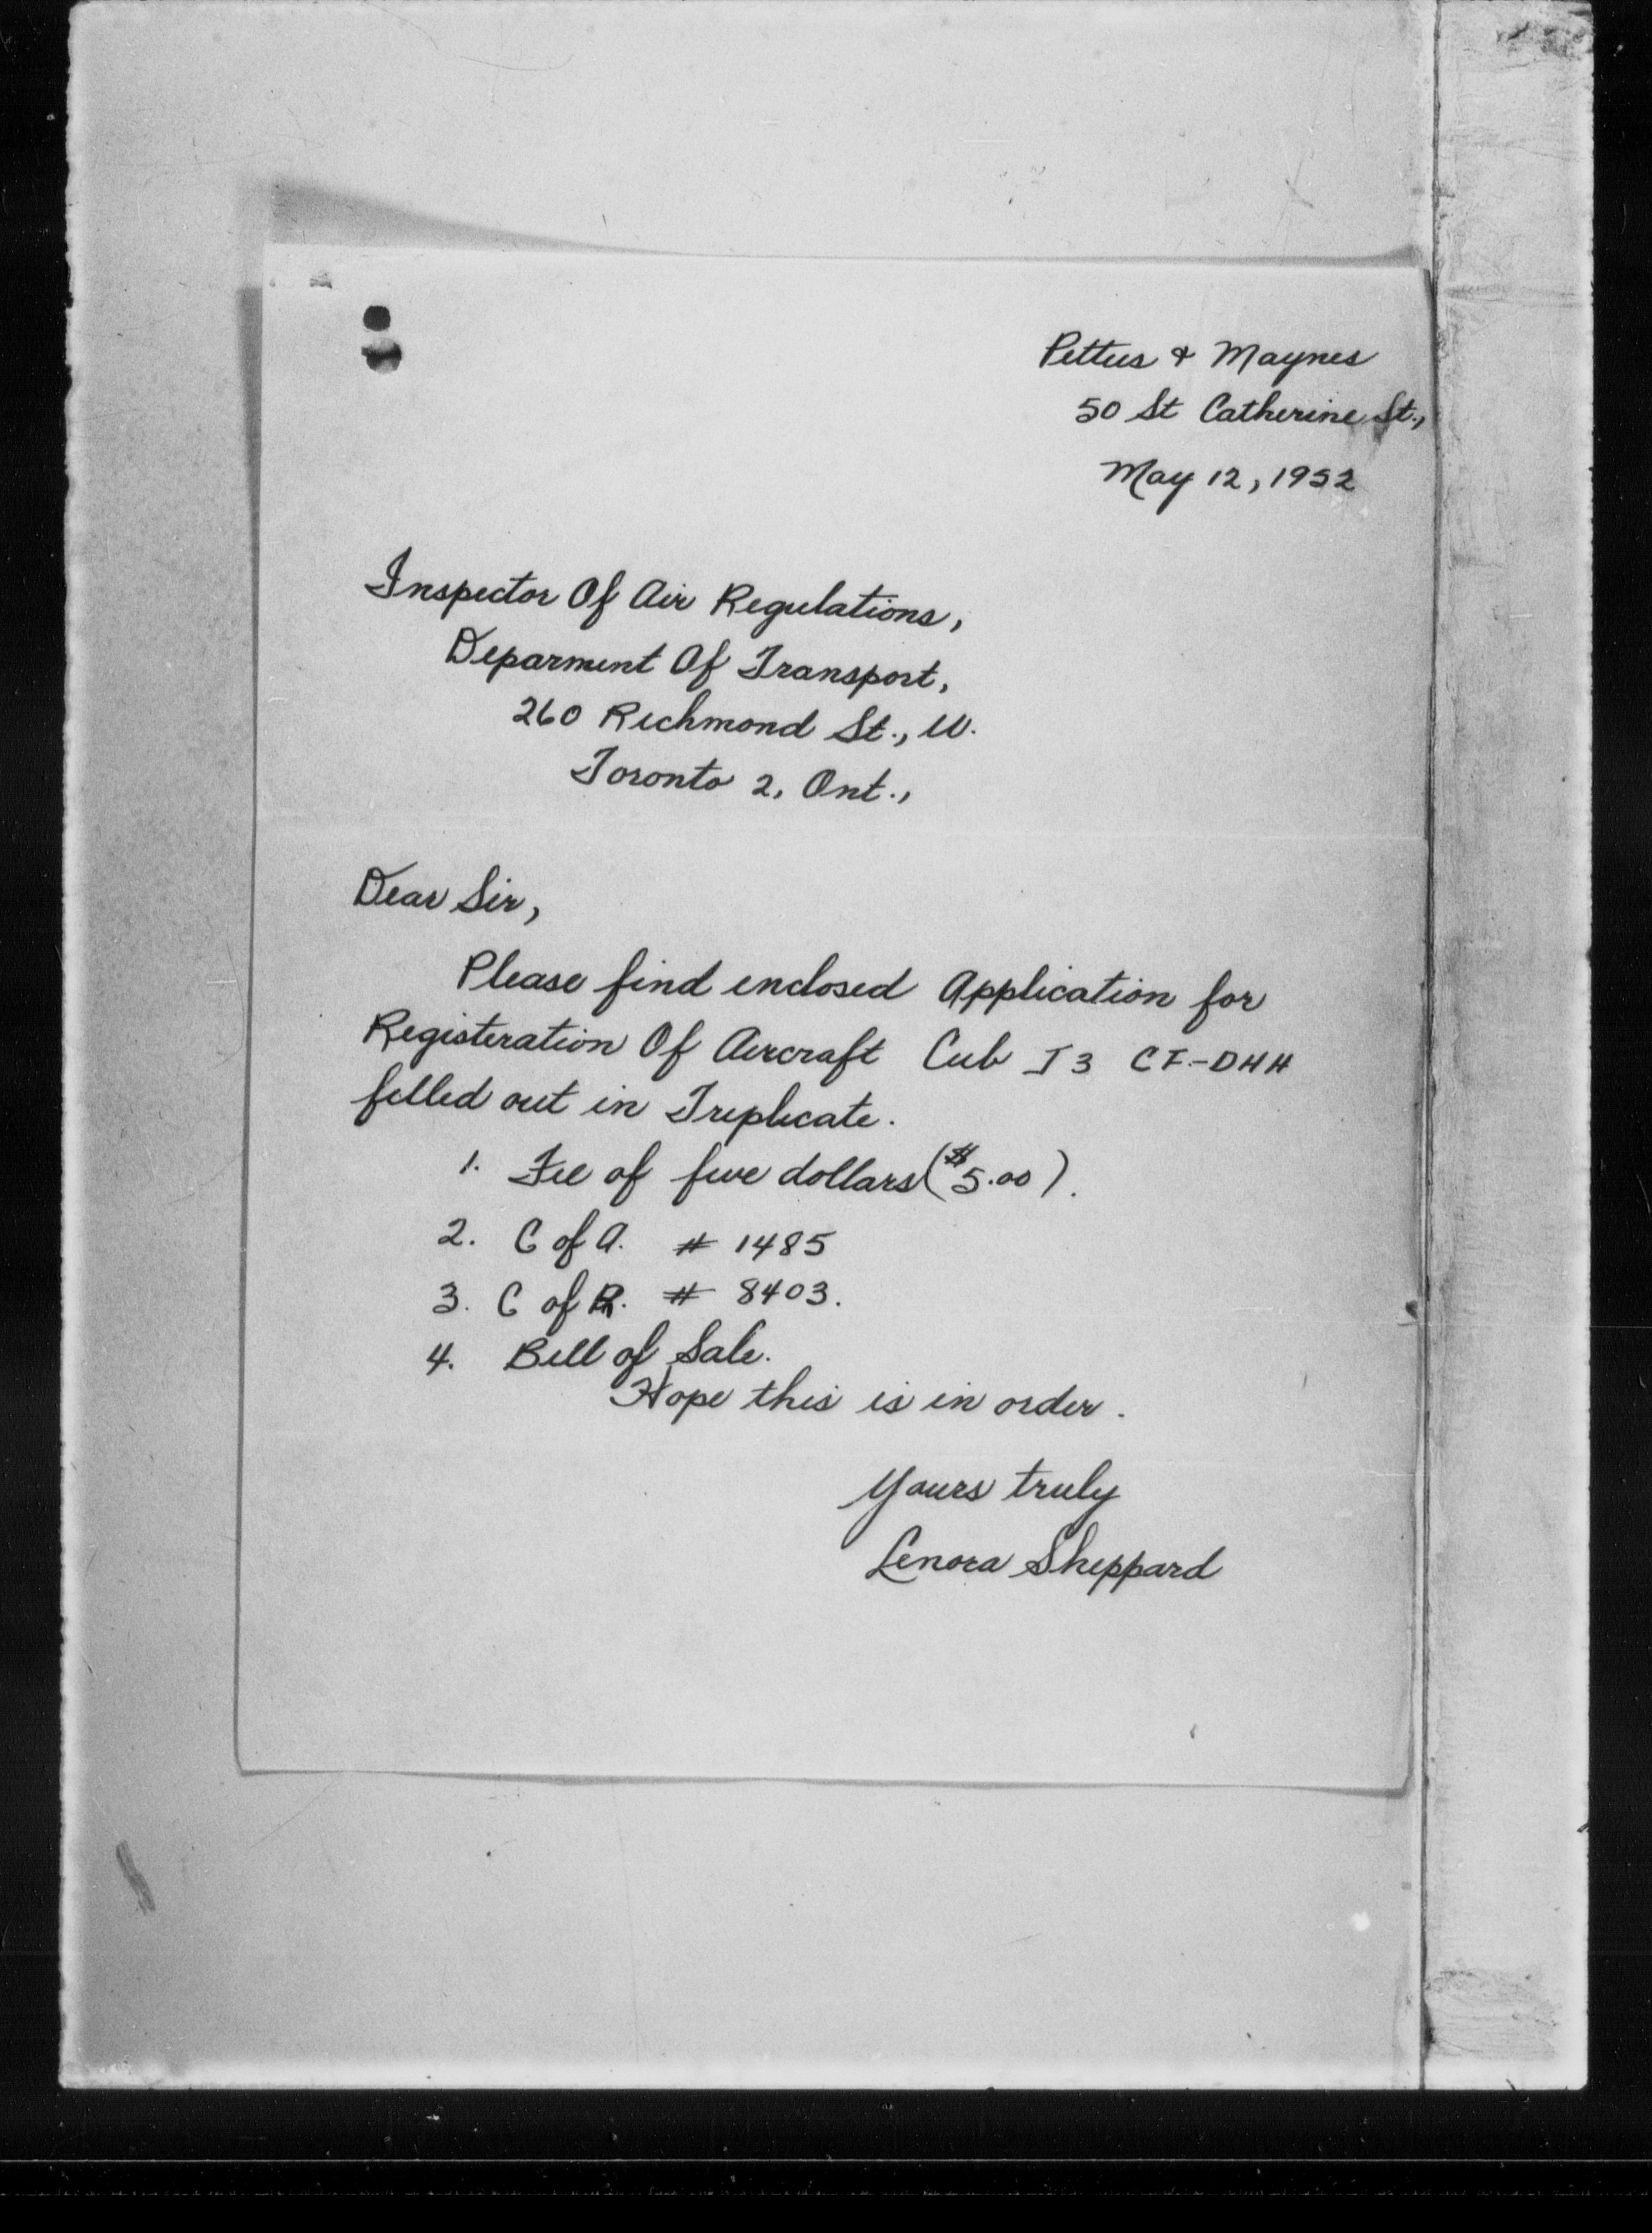 Pettus & Maynes
50 St Catherine St.,
May 12, 1952
Inspector Of Air Regulations,
Deparment Of Transport,
260 Richmond St., W.
Toronto 2, Ont.,
Dear Sir,
Please find enclosed Application for
Registeration Of Aircraft Cub J3 CF-DHH
filled out in Triplicate.
1. Fee of five dollars ($5.00).
2. C of A. # 1485
3. C of R. # 8403.
4. Bill of Sale.
Hope this is in order.
Yours truly
Lenora Sheppard